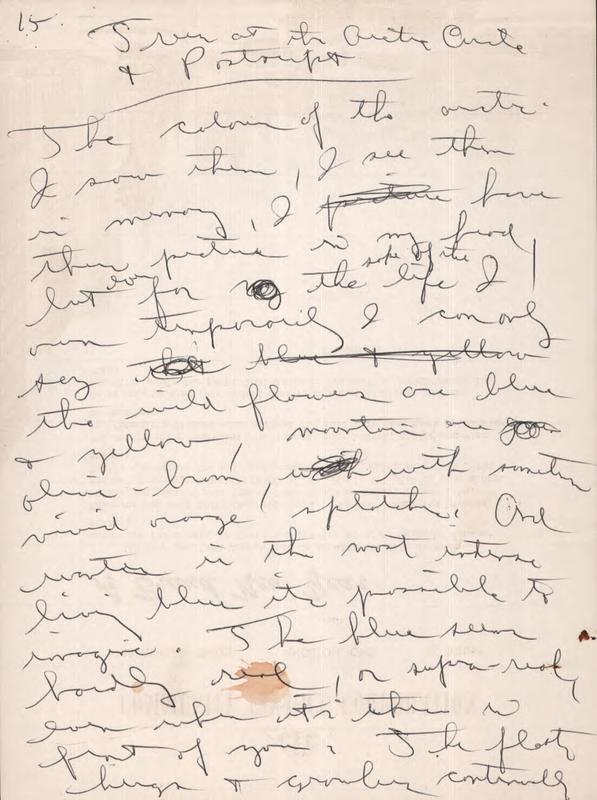 15.
Trees at the Arctic Circle
& Postscript
The colours of the arctic.
I saw them, I see them
in memory, I have
them picture in my head,
sake of the
but for the life I
own temporarily I can only
say blue & yellow
the wild flowers are blue
& yellow, mountains are
olive-brown, with sometimes
vivid orange, splotches. And
water is the most intense
living blue its possible to
imagine. The blue seems
hardly real, or supra-real,
even when its there in
front of you. The floating
bergs & growlers continually